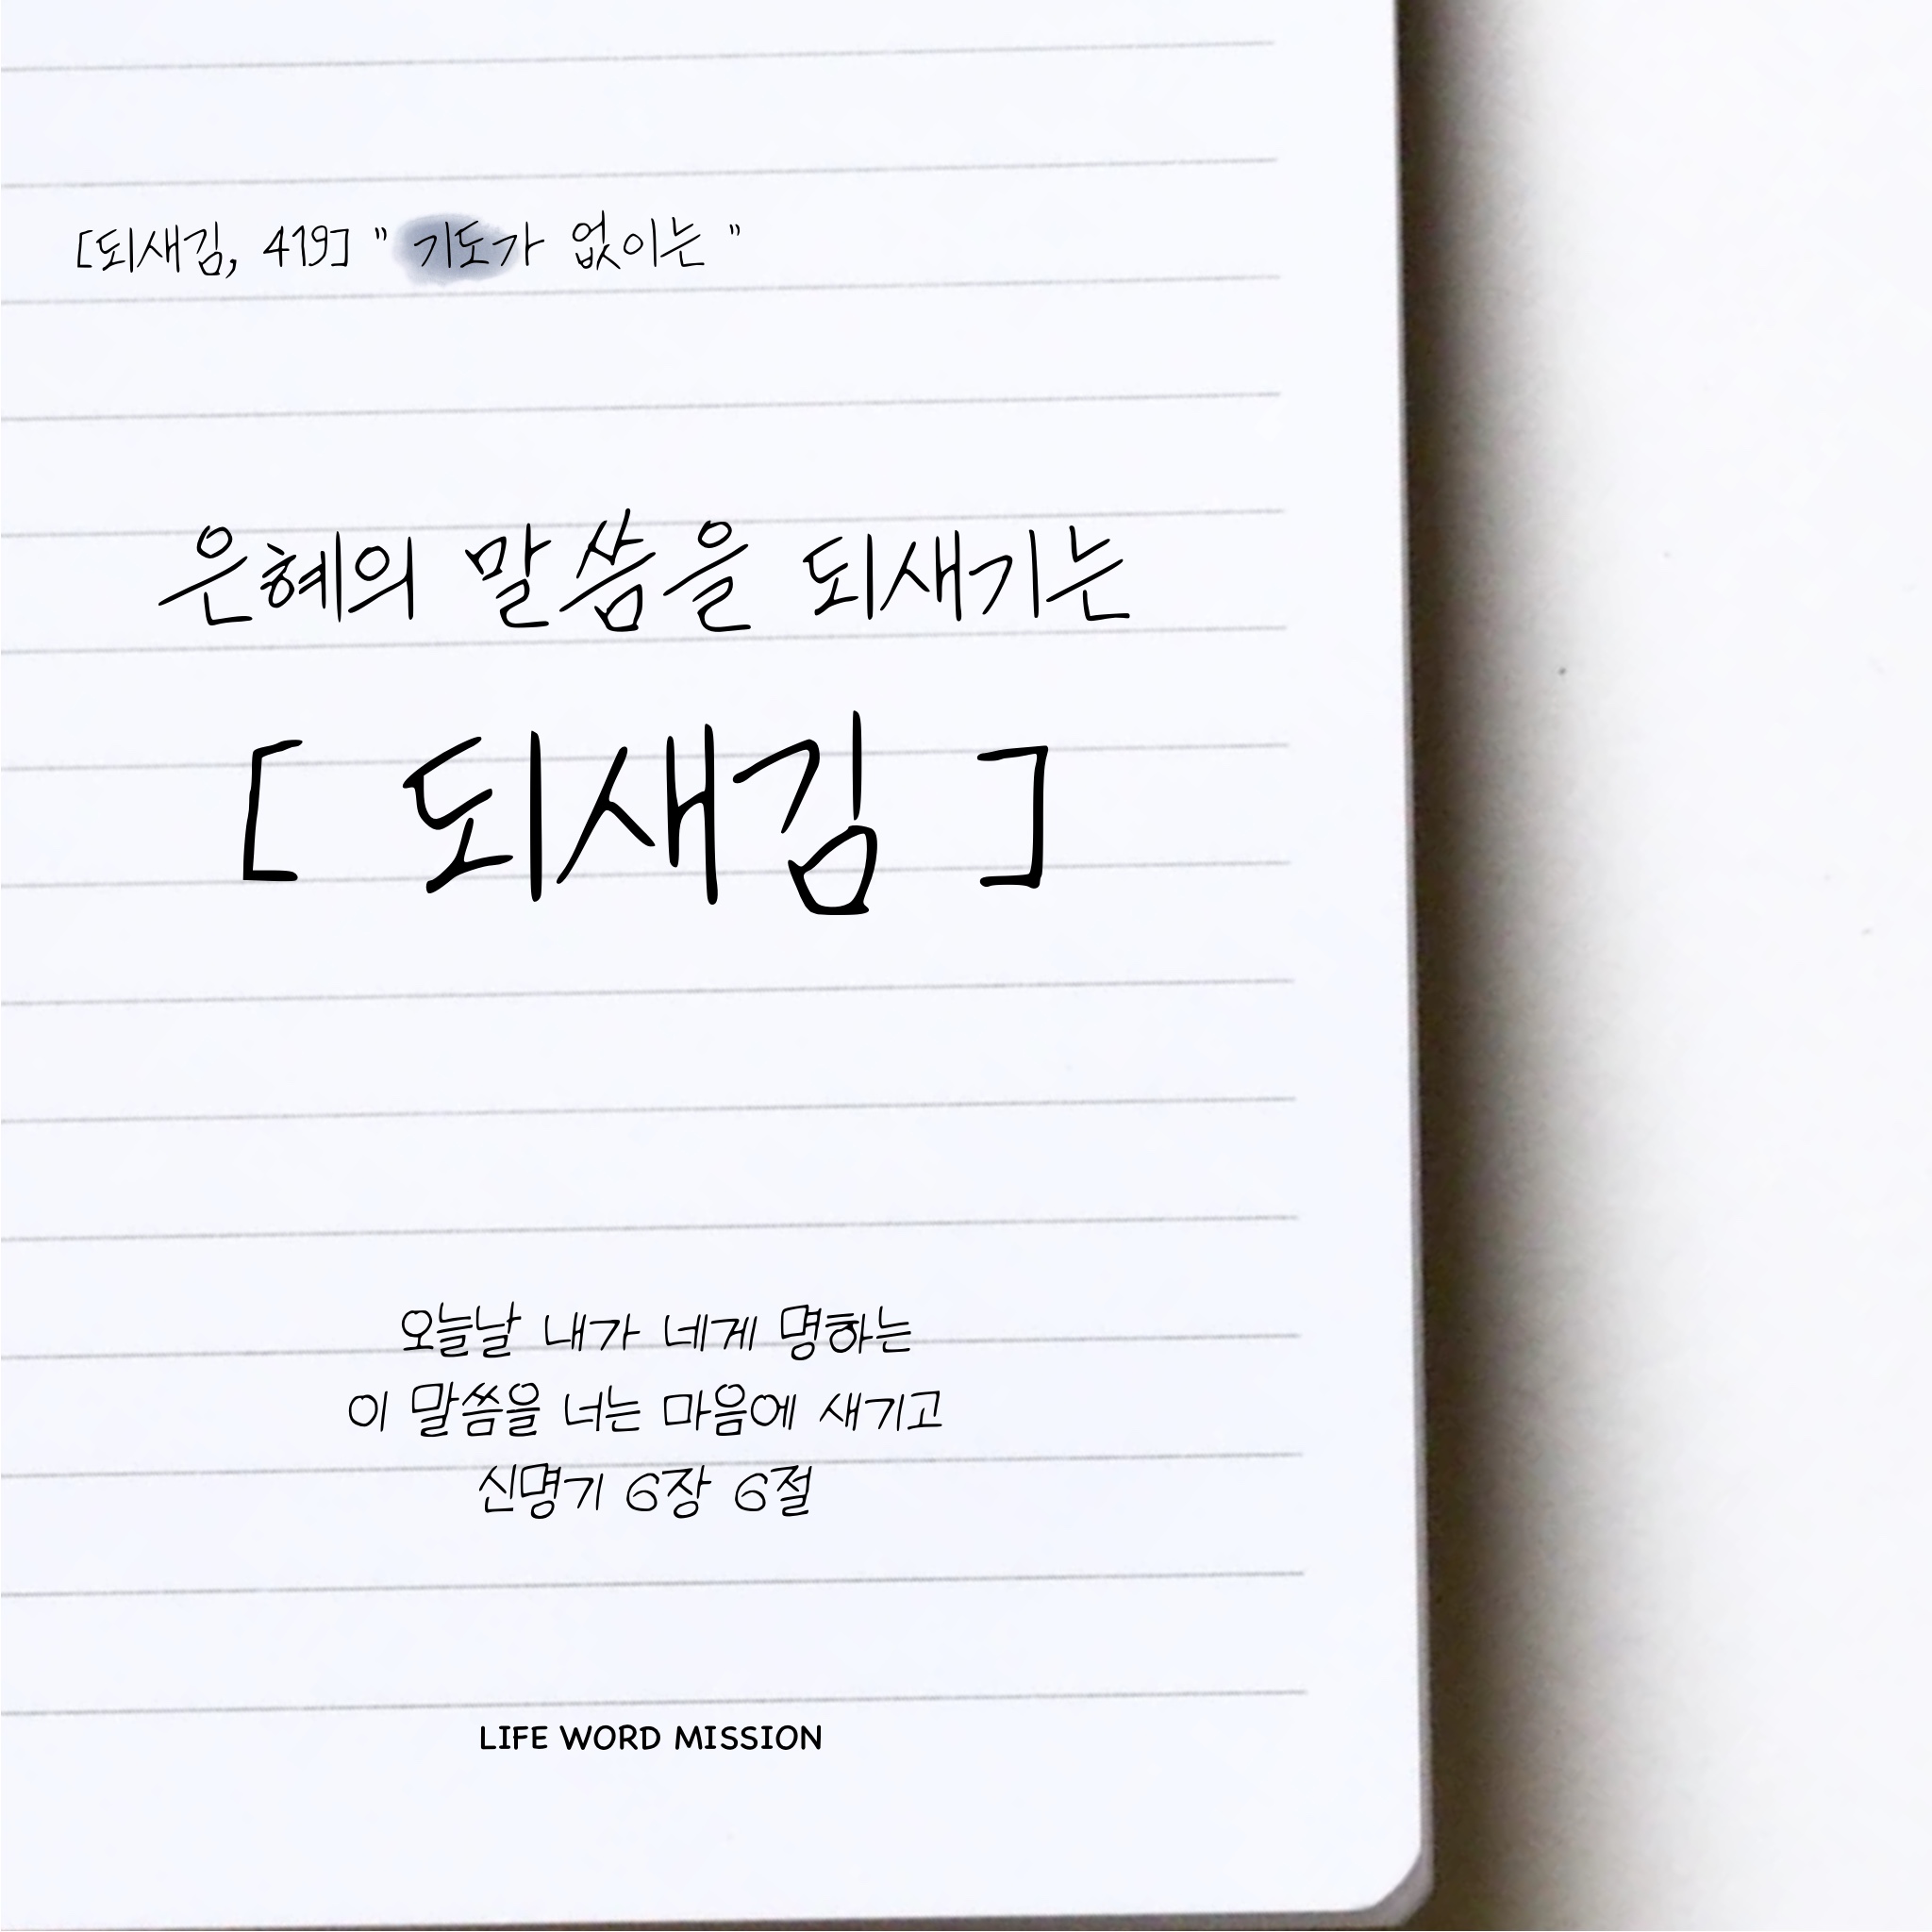 [되새김, 419] " 기도가 없이는 "
은혜의 말씀을 되새기는
[ 되새김 ]
오늘날 내가 네게 명하는
이 말씀을 너는 마음에 새기고
신명기 6장 6절
LIFE WORD MISSION